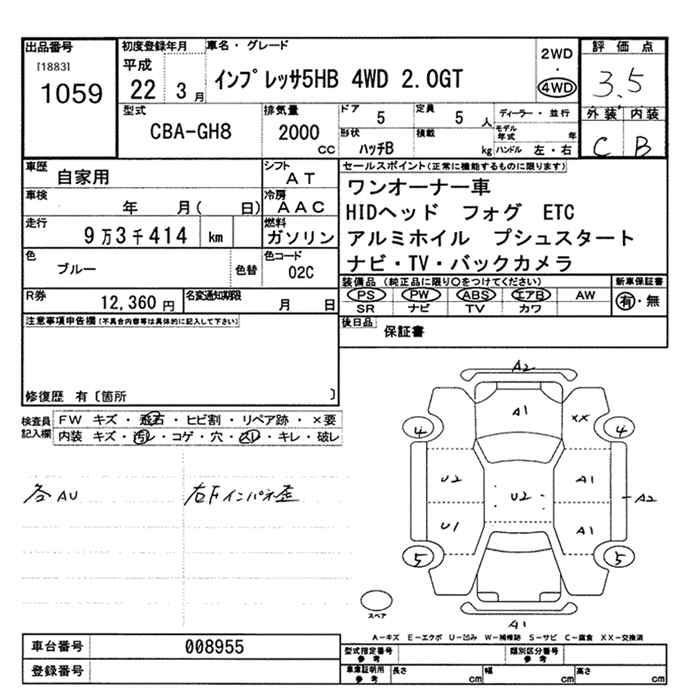 出品番号
[1883]
1059
初度登録年月
平成
22 3月
車名・グレード
インプレッサ5HB 4WD 2.0GT
2WD
・
4WD
評価点
3.5
外装 内装
C B
型式
CBA-GH8
排気量
2000 cc
ドア 5
定員 5 人
ディーラー・並行
モデル年式 年
形状 ハッチB
積載 kg
ハンドル 左・右
車歴 自家用
シフト AT
車検 年 月( 日)
冷房 AAC
走行 9万3千414 km
燃料 ガソリン
色 ブルー 色替
色コード 02C
R券 12,360円
名変通知期限 月 日
セールスポイント(正常に機能するものに限ります)
ワンオーナー車
HIDヘッド フォグ ETC
アルミホイル プシュスタート
ナビ・TV・バックカメラ
装備品(純正品に限り○をつけてください)
PS PW ABS エアB AW
SR ナビ TV カワ
新車保証書
有・無
後日品 保証書
注意事項申告欄(不具合内容等は具体的に記入して下さい)
修復歴 有〔箇所 〕
検査員記入欄
FW キズ・飛石・ヒビ割・リペア跡・×要
内装 キズ・汚レ・コゲ・穴・スレ・キレ・破レ
各AU
右Fインパネ歪
A2
A1 XX
4 4
U2 A1
U2 A2
U1 A1
5 5
スペア
A1
A-キズ E-エクボ U-凹み W-補修跡 S-サビ C-腐食 XX-交換済
車台番号 008955
登録番号
型式指定番号 参考
類別区分番号 参考
車庫証明用 参考
長さ cm 幅 cm 高さ cm